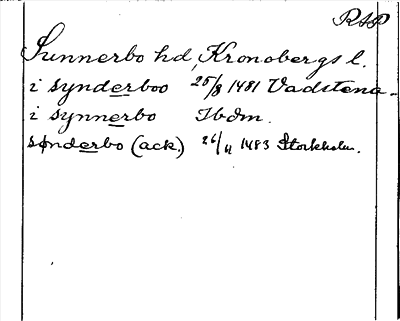 RAP
Sunnerbo hd, Kronobergs l.
i synderboo 25/8 1481 Vadstena
i synnerbo Ibdm.
sønderbo (ack.) 26/11 1483 Stockholm.